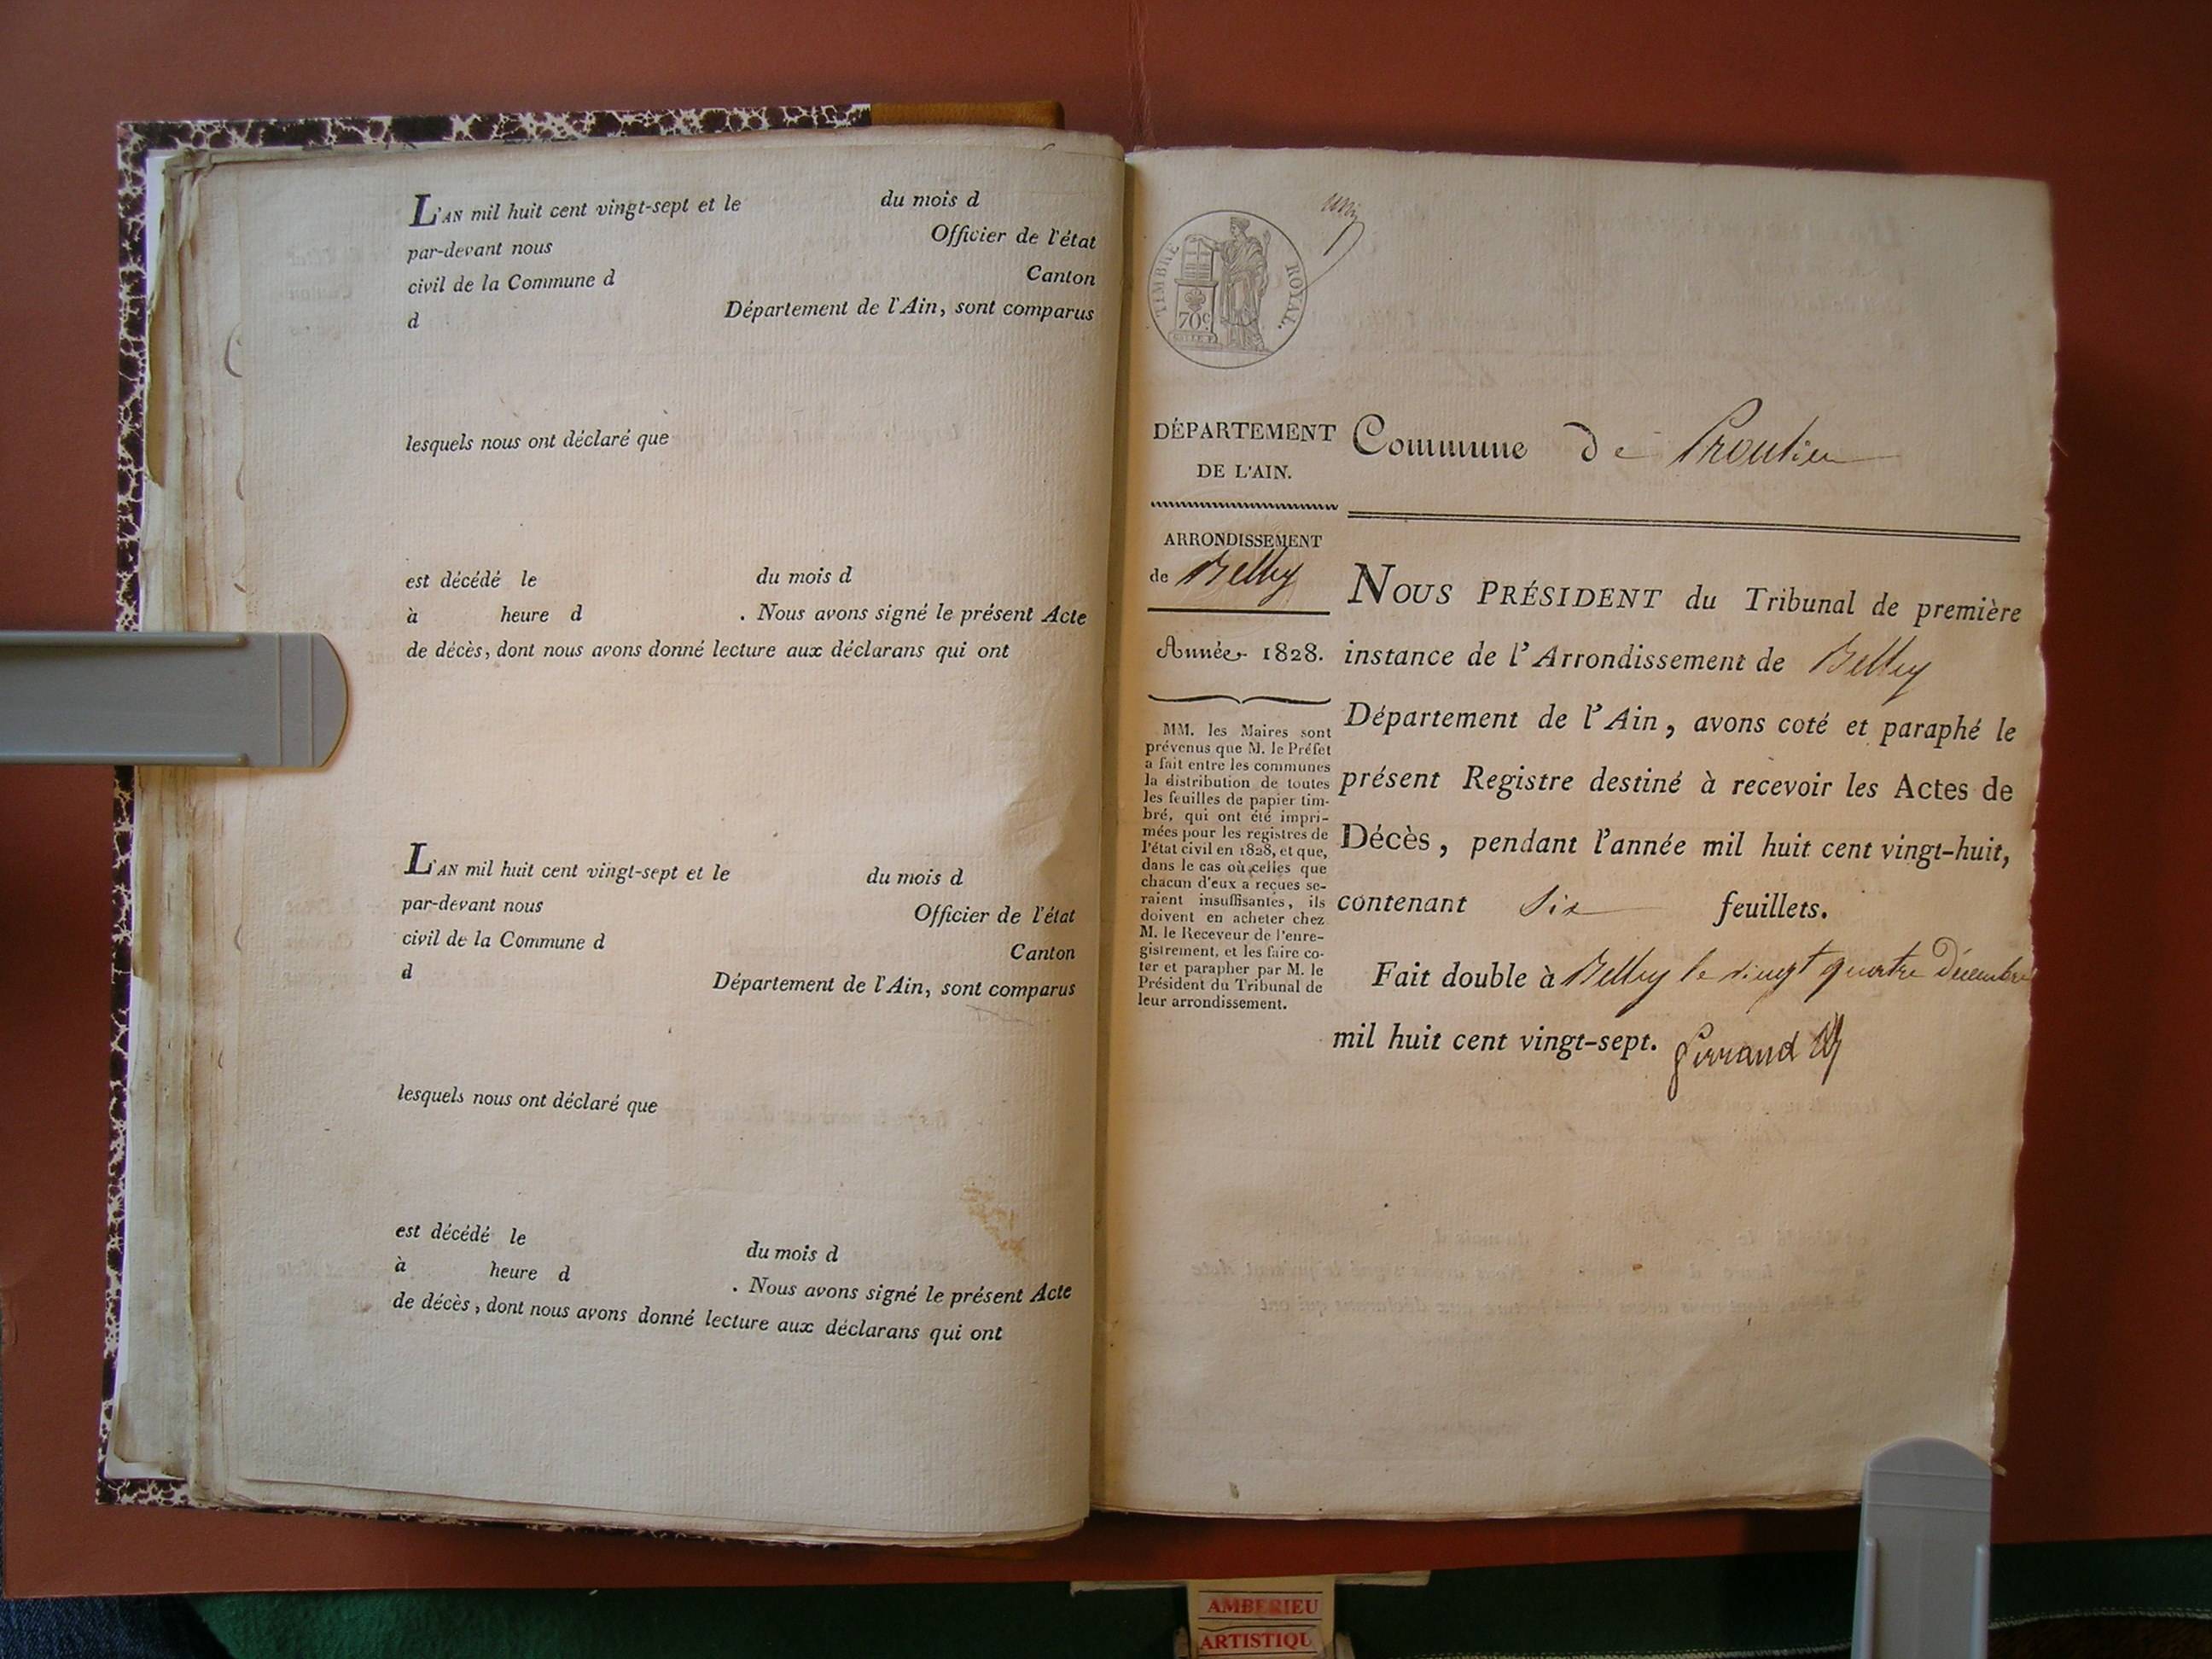 L'AN mil huit cent vingt-sept et le du mois d
par-devant nous Officier de l'état
civil de la Commune d Canton
d Département de l'Ain, sont comparus
lesquels nous ont déclaré que
est décédé le du mois d
à heure d . Nous avons signé le présent Acte
de décès, dont nous avons donné lecture aux déclarans qui ont
L'AN mil huit cent vingt-sept et le du mois d
par-devant nous Officier de l'état
civil de la Commune d Canton
d Département de l'Ain, sont comparus
lesquels nous ont déclaré que
est décédé le du mois d
à heure d . Nous avons signé le présent Acte
de décès, dont nous avons donné lecture aux déclarans qui ont
TIMBRE ROYAL.
70c
DÉPARTEMENT
DE L'AIN.
ARRONDISSEMENT
de Belley
Année 1828.
MM. les Maires sont
prévenus que M. le Préfet
a fait entre les communes
la distribution de toutes
les feuilles de papier tim-
bré, qui ont été impri-
mées pour les registres de
l'état civil en 1828, et que,
dans le cas où celles que
chacun d'eux a reçues se-
raient insuffisantes, ils
doivent en acheter chez
M. le Receveur de l'enre-
gistrement, et les faire co-
ter et parapher par M. le
Président du Tribunal de
leur arrondissement.
Commune de Proulieu
NOUS PRÉSIDENT du Tribunal de première
instance de l'Arrondissement de Belley
Département de l'Ain, avons coté et paraphé le
présent Registre destiné à recevoir les Actes de
Décès, pendant l'année mil huit cent vingt-huit,
contenant six feuillets.
Fait double à Belley le vingt quatre Décembre
mil huit cent vingt-sept.
AMBERIEU
ARTISTIQU